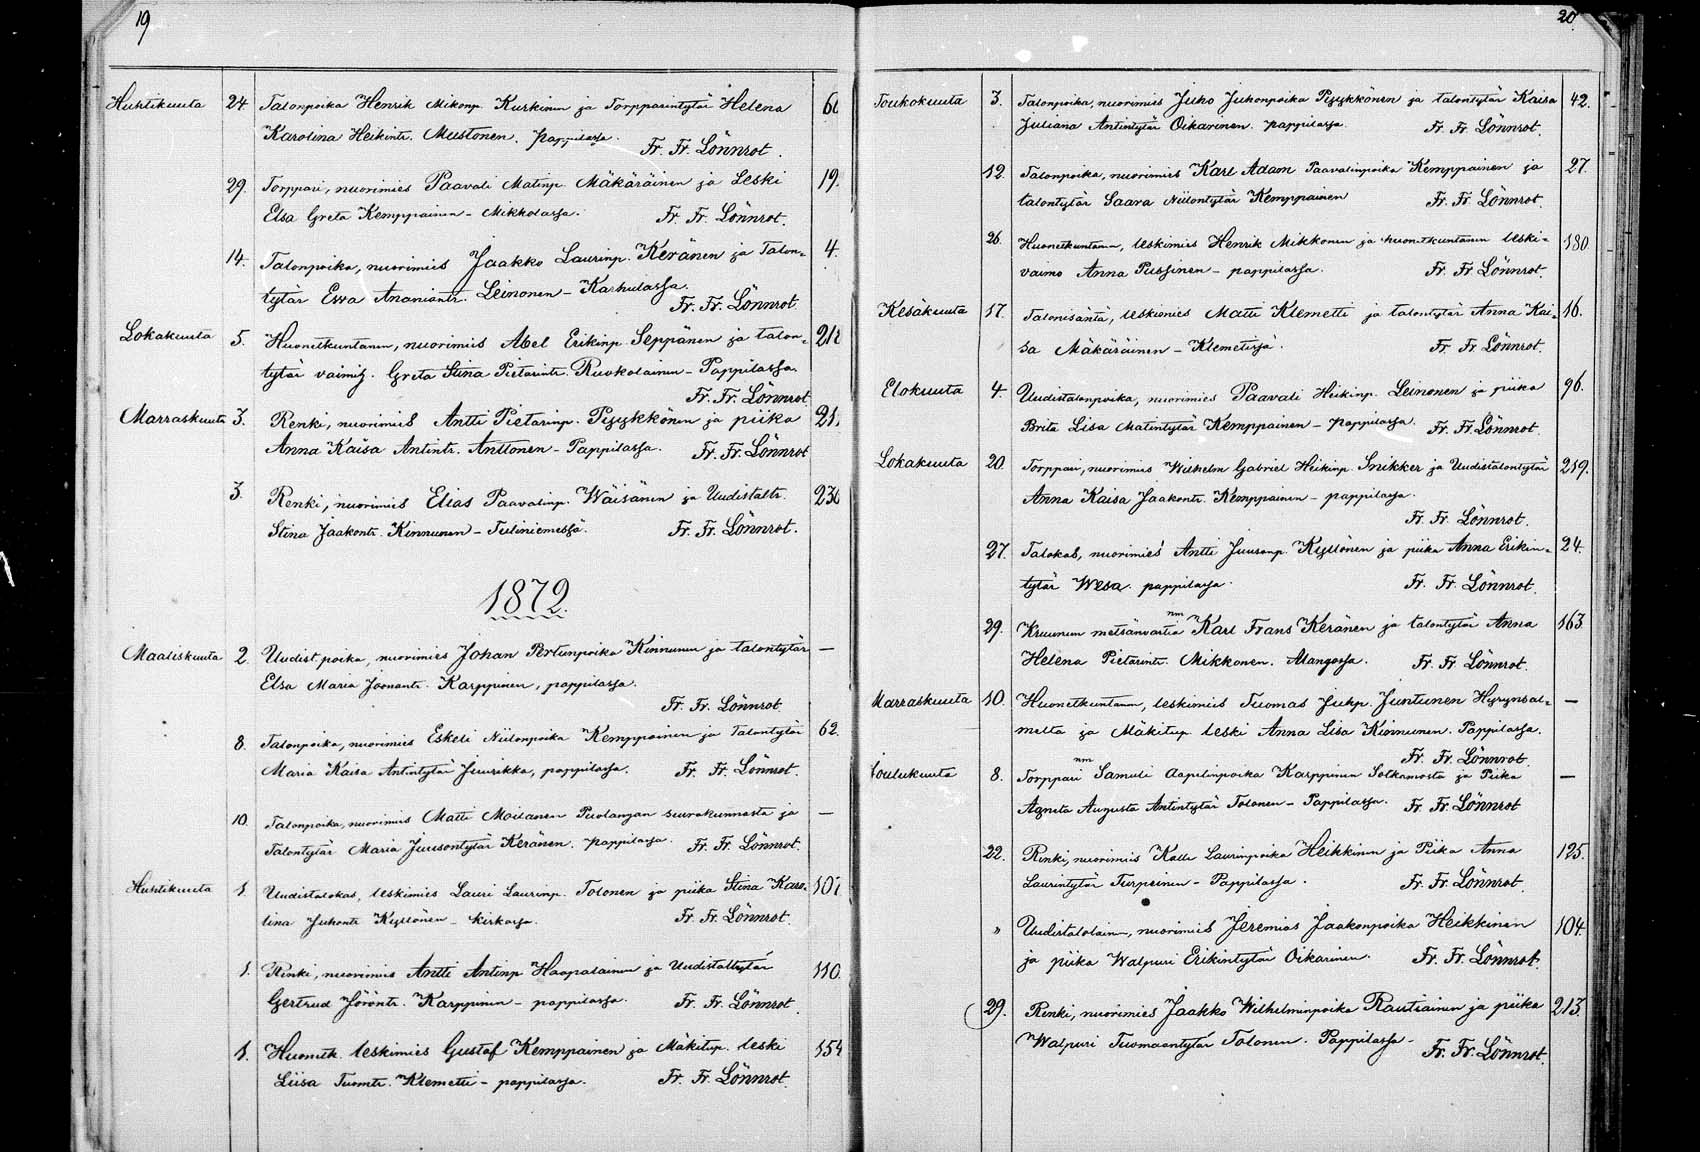 19
Huhtikuuta 24 Talonpoika Henrik Mikonp. Kurkinen ja Torpparintytär Helena 60
Karolina Heikintr. Mustonen. pappilassa. Fr. Fr. Lönnrot.
29. Torppari, nuorimies Paavali Matinp. Mäkäräinen ja Leski 19.
Elsa Greta Kemppainen - Mikkolassa. Fr. Fr. Lönnrot.
14. Talonpoika, nuorimies Jaakko Laurinp. Keränen ja Talon- 4.
tytär Ewa Ananiantr. Leinonen - Karhulassa. Fr. Fr. Lönnrot
Lokakuuta 5. Huonetkuntanen, nuorimies Abel Erikinp. Seppänen ja talon- 218
tytär vaimih. Greta Stina Pietarintr. Ruokolainen - Pappilassa.
Fr. Fr. Lönnrot
Marraskuuta 3. Renki, nuorimies Antti Pietarinp. Pyykkönen ja piika 21
Anna Kaisa Antintr. Anttonen - Pappilassa. Fr. Fr. Lönnrot
3. Renki, nuorimies Elias Paavalinp. Wäisänen ja Uudistaltr. 230
Stina Jaakontr. Kinnunen - Tuliniemessä. Fr. Fr. Lönnrot.
1872.
Maaliskuuta 2. Uudist. poika, nuorimies Johan Pertunpoika Kinnunen ja talontytär —
Elsa Maria Joonantr. Karppinen, pappilassa.
Fr. Fr. Lönnrot
8. Talonpoika, nuorimies Eskeli Niilonpoika Kemppainen ja Talontytär 62.
Maria Kaisa Antintytär Juurikka, pappilassa. Fr. Fr. Lönnrot.
10. Talonpoika, nuorimies Matti Moilanen Puolangan seurakunnasta ja —
Talontytär Maria Juusontytär Keränen. pappilassa. Fr. Fr. Lönnrot.
Huhtikuuta 1. Uudistalokas, leskimies Lauri Laurinp. Tolonen ja piika Stina Karo- 107
lina Juhontr. Kyllönen - kirkossa. Fr. Fr. Lönnrot.
1. Renki, nuorimies Antti Antinp. Haapalainen ja Uudistaltytär 110.
Gertrud Jöröntr. Karppinen - pappilassa. Fr. Fr. Lönnrot.
1. Huonetk. leskimies Gustaf Kemppainen ja Mäkitup. leski 154
Liisa Tuomtr. Klemetti - pappilassa. Fr. Fr. Lönnrot.
20.
Toukokuuta 3. Talonpoika, nuorimies Juho Juhonpoika Pyykkönen ja talontytär Kaisa 42.
Juliana Antintytär Oikarinen. pappilassa. Fr. Fr. Lönnrot.
12. Talonpoika, nuorimies Karl Adam Paavalinpoika Kemppainen ja 27.
talontytär Saara Niilontytär Kemppainen Fr. Fr. Lönnrot.
26. Huonetkuntanen, leskimies Henrik Mikkonen ja huonetkuntanen leski- 180.
vaimo Anna Pussinen - pappilassa. Fr. Fr. Lönnrot.
Kesäkuuta 17. Talonisäntä, leskimies Matti Klemetti ja talontytär Anna Kai- 16.
sa Mäkäräinen - Klemetissä. Fr. Fr. Lönnrot.
Elokuuta 4. Uudistalonpoika, nuorimies Paavali Heikinp. Leinonen ja piika 96.
Brita Lisa Matintytär Kemppainen - pappilassa. Fr. Fr. Lönnrot.
Lokakuuta 20. Torppari, nuorimies Wilhelm Gabriel Heikinp. Snikker ja Uudistalontytär 219.
Anna Kaisa Jaakontr. Kemppainen - pappilassa.
Fr. Fr. Lönnrot.
27. Talokas, nuorimies Antti Juusonp. Kyllönen ja piika Anna Erikin- 24.
tytär Wesa. pappilassa. Fr. Fr. Lönnrot.
29. Kruunun metsänvartia nm Karl Frans Keränen ja talontytär Anna 163
Helena Pietarintr. Mikkonen. Alangossa. Fr. Fr. Lönnrot.
Marraskuuta 10. Huonetkuntanen, leskimies Tuomas Juhp. Juntunen Hyrynsal- —
melta ja Mäkitup. leski Anna Lisa Kinnunen. Pappilassa.
Fr. Fr. Lönnrot.
Joulukuuta 8. Torppari nm Samuli Aapelinpoika Karppinen Sotkamosta ja Piika —
Agneta Augusta Antintytär Tolonen - Pappilassa. Fr. Fr. Lönnrot
22. Renki, nuorimies Kalle Laurinpoika Heikkinen ja Piika Anna 125.
Laurintytär Turpeinen - Pappilassa. Fr. Fr. Lönnrot.
" Uudistalolainen, nuorimies Jeremias Jaakonpoika Heikkinen 104.
ja piika Walpuri Erikintytär Oikarinen. Fr. Fr. Lönnrot.
29. Renki, nuorimies Jaakko Wilhelminpoika Rautiainen ja piika 213.
Walpuri Tuomaantytär Tolonen. Pappilassa. Fr. Fr. Lönnrot.